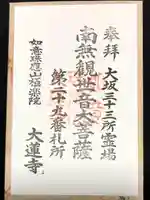 奉拝
大坂三十三所霊場
南無観世音大菩薩
第二十九番札所
如意珠應山極楽院
大蓮寺